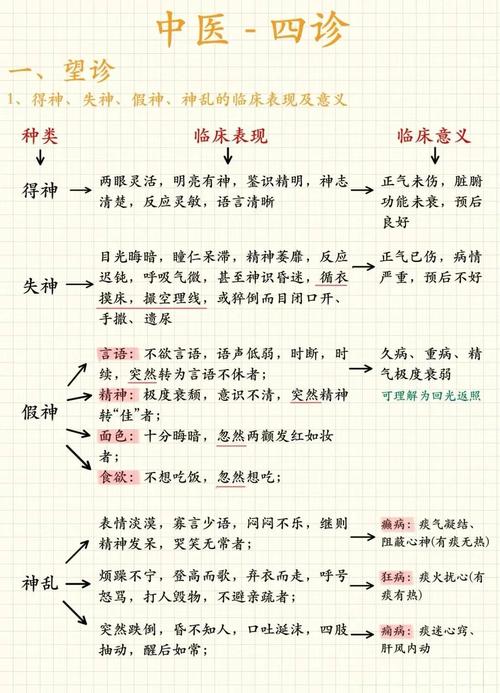 中医-四诊
一、望诊
1、得神、失神、假神、神乱的临床表现及意义
种类
临床表现
临床意义
得神
两眼灵活，明亮有神，鉴识精明，神志
清楚，反应灵敏，语言清晰
正气未伤，脏腑
功能未衰，预后
良好
失神
目光晦暗，瞳仁呆滞，精神萎靡，反应
迟钝，呼吸气微，甚至神识昏迷，循衣
摸床，撮空理线，或猝倒而目闭口开、
手撒、遗尿
正气已伤，病情
严重，预后不好
假神
言语：不欲言语，语声低弱，时断，时
续，突然转为言语不休者；
精神：极度衰颓，意识不清，突然精神
转“佳”者；
面色：十分晦暗，忽然两颧发红如妆
者；
食欲：不想吃饭，忽然想吃；
久病、重病、精
气极度衰弱
可理解为回光返照
神乱
表情淡漠，寡言少语，闷闷不乐，继则
精神发呆，哭笑无常者；
癫病：痰气凝结、
阻蔽心神(有痰无热)
烦躁不宁，登高而歌，弃衣而走，呼号
怒骂，打人毁物，不避亲疏者；
狂病：痰火扰心(有
痰有热)
突然跌倒，昏不知人，口吐涎沫，四肢
抽动，醒后如常；
痫病：痰迷心窍、
肝风内动